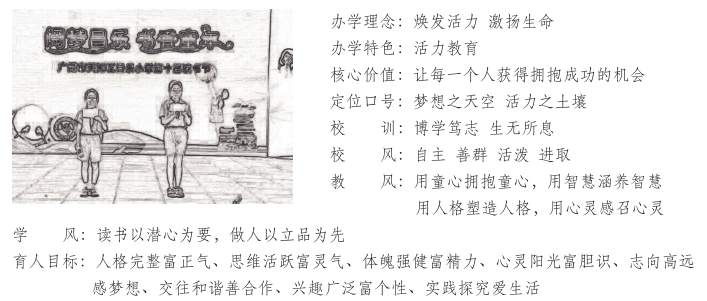 阅楼昌乐 书香童年
办学理念：焕发活力 激扬生命
办学特色：活力教育
核心价值：让每一个人获得拥抱成功的机会
定位口号：梦想之天空 活力之土壤
校　　训：博学笃志 生无所息
校　　风：自主 善群 活泼 进取
教　　风：用童心拥抱童心，用智慧涵养智慧
用人格塑造人格，用心灵感召心灵
学　　风：读书以潜心为要，做人以立品为先
育人目标：人格完整富正气、思维活跃富灵气、体魄强健富精力、心灵阳光富胆识、志向高远
感梦想、交往和谐善合作、兴趣广泛富个性、实践探究爱生活